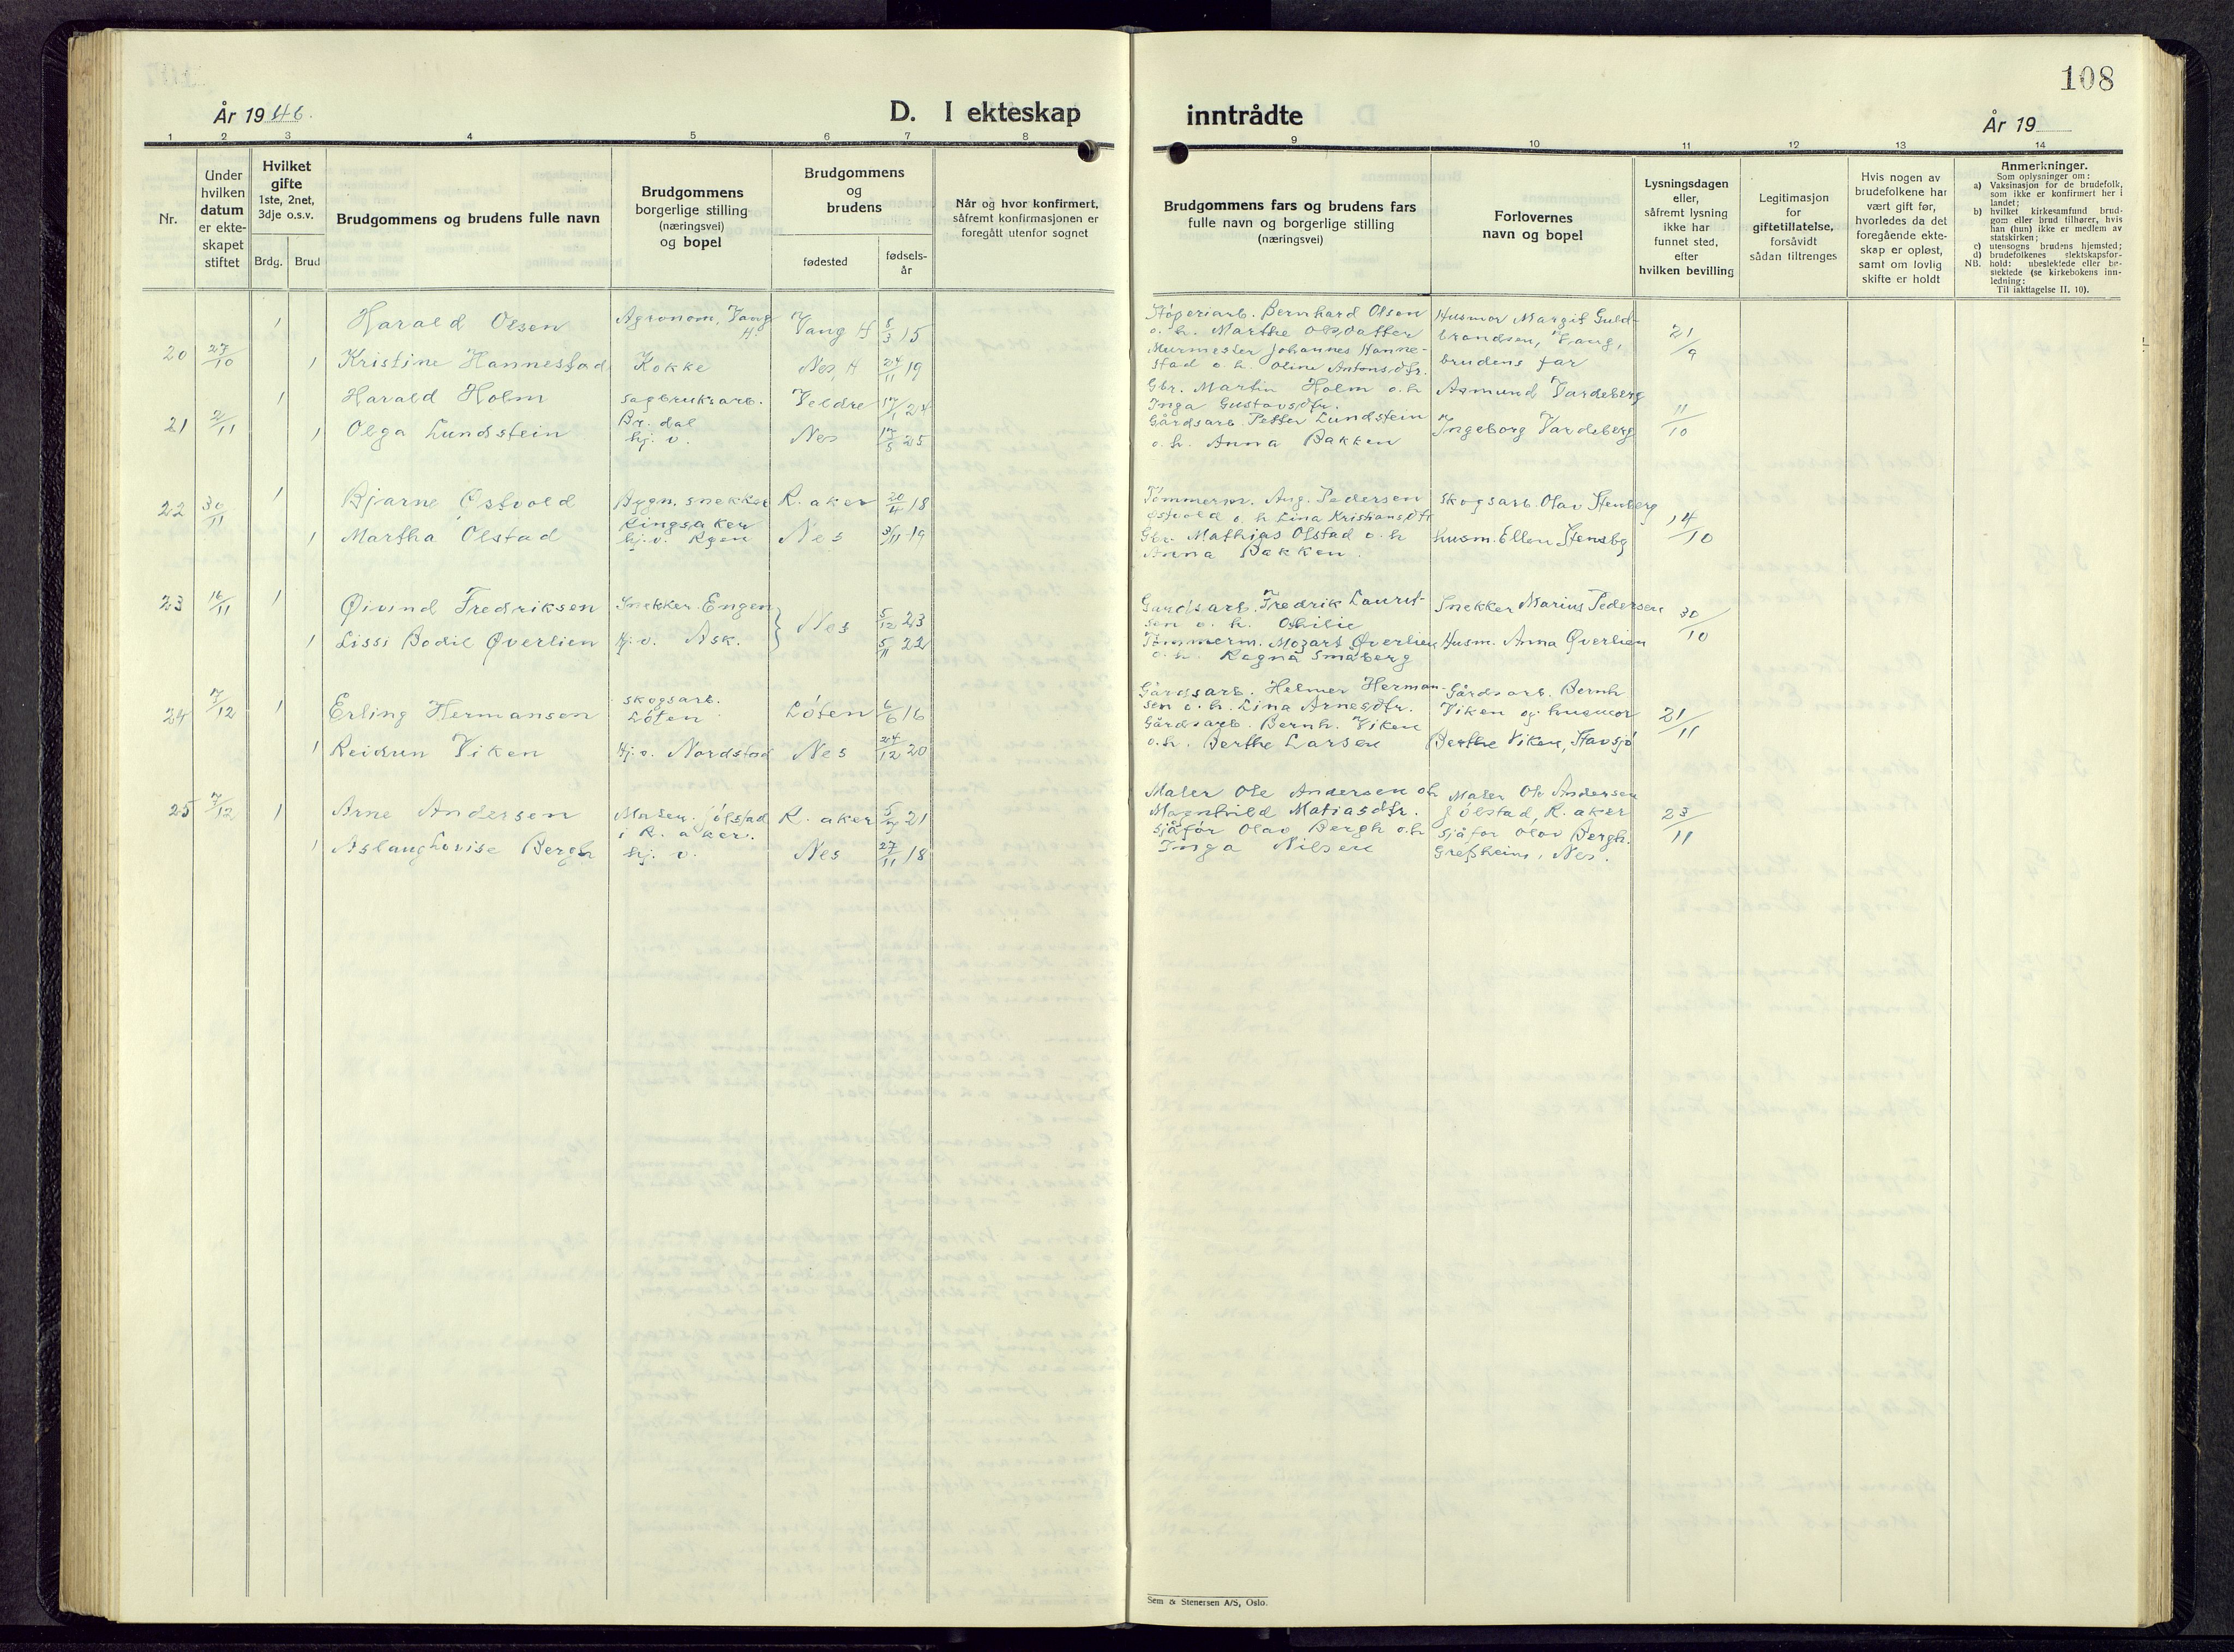 108
År 1946.
D. I ekteskap inntrådte
År 19
1 2 3 4 5 6 7 8 9 10 11 12 13 14
Nr.
Under
hvilken
datum
er ekte-
skapet
stiftet
Hvilket
gifte
1ste, 2net,
3dje o.s.v.
Brdg. Brud
Brudgommens og brudens fulle navn
Brudgommens
borgerlige stilling
(næringsvei)
og bopel
Brudgommens
og
brudens
fødested
fødsels-
år
Når og hvor konfirmert,
såfremt konfirmasjonen er
foregått utenfor sognet
Brudgommens fars og brudens fars
fulle navn og borgerlige stilling
(næringsvei)
Forlovernes
navn og bopel
Lysningsdagen
eller,
såfremt lysning
ikke har
funnet sted,
efter
hvilken bevilling
Legitimasjon
for
giftetillatelse,
forsåvidt
sådan tiltrenges
Hvis nogen av
brudefolkene har
vært gift før,
hvorledes da det
foregående ekte-
skap er opløst,
samt om lovlig
skifte er holdt
Anmerkninger.
Som oplysninger om:
a) Vaksinasjon for de brudefolk,
som ikke er konfirmert her i
landet;
b) hvilket kirkesamfund brud-
gom eller brud tilhører, hvis
han (hun) ikke er medlem av
statskirken;
c) utensogns brudens hjemsted;
d) brudefolkenes slektskapsfor-
hold: ubeslektede eller be-
slektede (se kirkebokens inn-
ledning:
NB.
Til iakttagelse II, 10).
20 27/10
1 Harald Olsen
Agronom, Vang H.
Vang H 5/3 15
Støperiarb. Bernhard Olsen
o. h. Marthe Olsdatter
Husmor Margit Guld-
brandsen, Vang,
21/9
1 Kristine Hannestad
Kokke
Nes, H 24/11 19
Murmester Johannes Hanne-
stad o. h. Oline Antonsdtr.
brudens far
21 2/11
1 Harald Holm
sagbruksarb.
Br. dal
Veldre 17/1 24
Gbr. Martin Holm o. h
Inga Gustavsdtr.
Asmund Vardeberg
11/10
1 Olga Lundstein
hj. v.
Nes 17/5 25
Gårdsarb. Petter Lundstein
o. h. Anna Bakken
Ingeborg Vardeberg
22 30/11
1 Bjarne Østvold
Bygn. snekker
Ringsaker
R. aker 20/4 18
Tømmerm. Aug. Pedersen
Østvold o. h Lina Kristiansdtr
Skogsarb. Olav Stenberg
14/10
1 Martha Olstad
hj. v.
Nes 3/11 19
Gbr. Mathias Olstad o. h
Anna Bakken.
Husm. Ellen Stensbg
23 16/11
1 Øivind Fredriksen
Snekker. Engen
Nes 5/12 23
Gårdsarb. Fredrik Laurit-
sen o. h. Othilie
Snekker Marius Pedersen
30/10
1 Lissi Bodil Øverlien
Hj. v. Ask.
5/11 22
Tømmerm. Mozart Øverlien
o. h. Ragna Småberg
Husm. Anna Øverlien
24 7/12
1 Erling Hermansen
skogsarb.
Løten
Løten 6/6 16
Gårdsarb. Helmer Herman-
sen o. h. Lina Arnesdtr.
Gårdsarb. Bernh
Viken og husmor
21/11
1 Reidun Viken
Hj. v. Nordstad
Nes 24/12 20
Gårdsarb. Bernh. Viken
o. h. Berthe Larsen
Berthe Viken, Stavsjø
25 7/12
1 Arne Andersen
Maler. Jølstad
i R. aker.
R. aker 21
Maler Ole Andersen oh
Magnhild Matiasdtr.
Maler Ole Andersen
Jølstad, R. aker
23/11
1 Aslaug Lovise Bergh
hj. v.
Nes 27/11 18
Sjåfør Olav Bergh o. h
Inga Nilsen
Sjåfør Olav Bergh.
Grefsheim, Nes.
Sem & Stenersen A/S, Oslo.